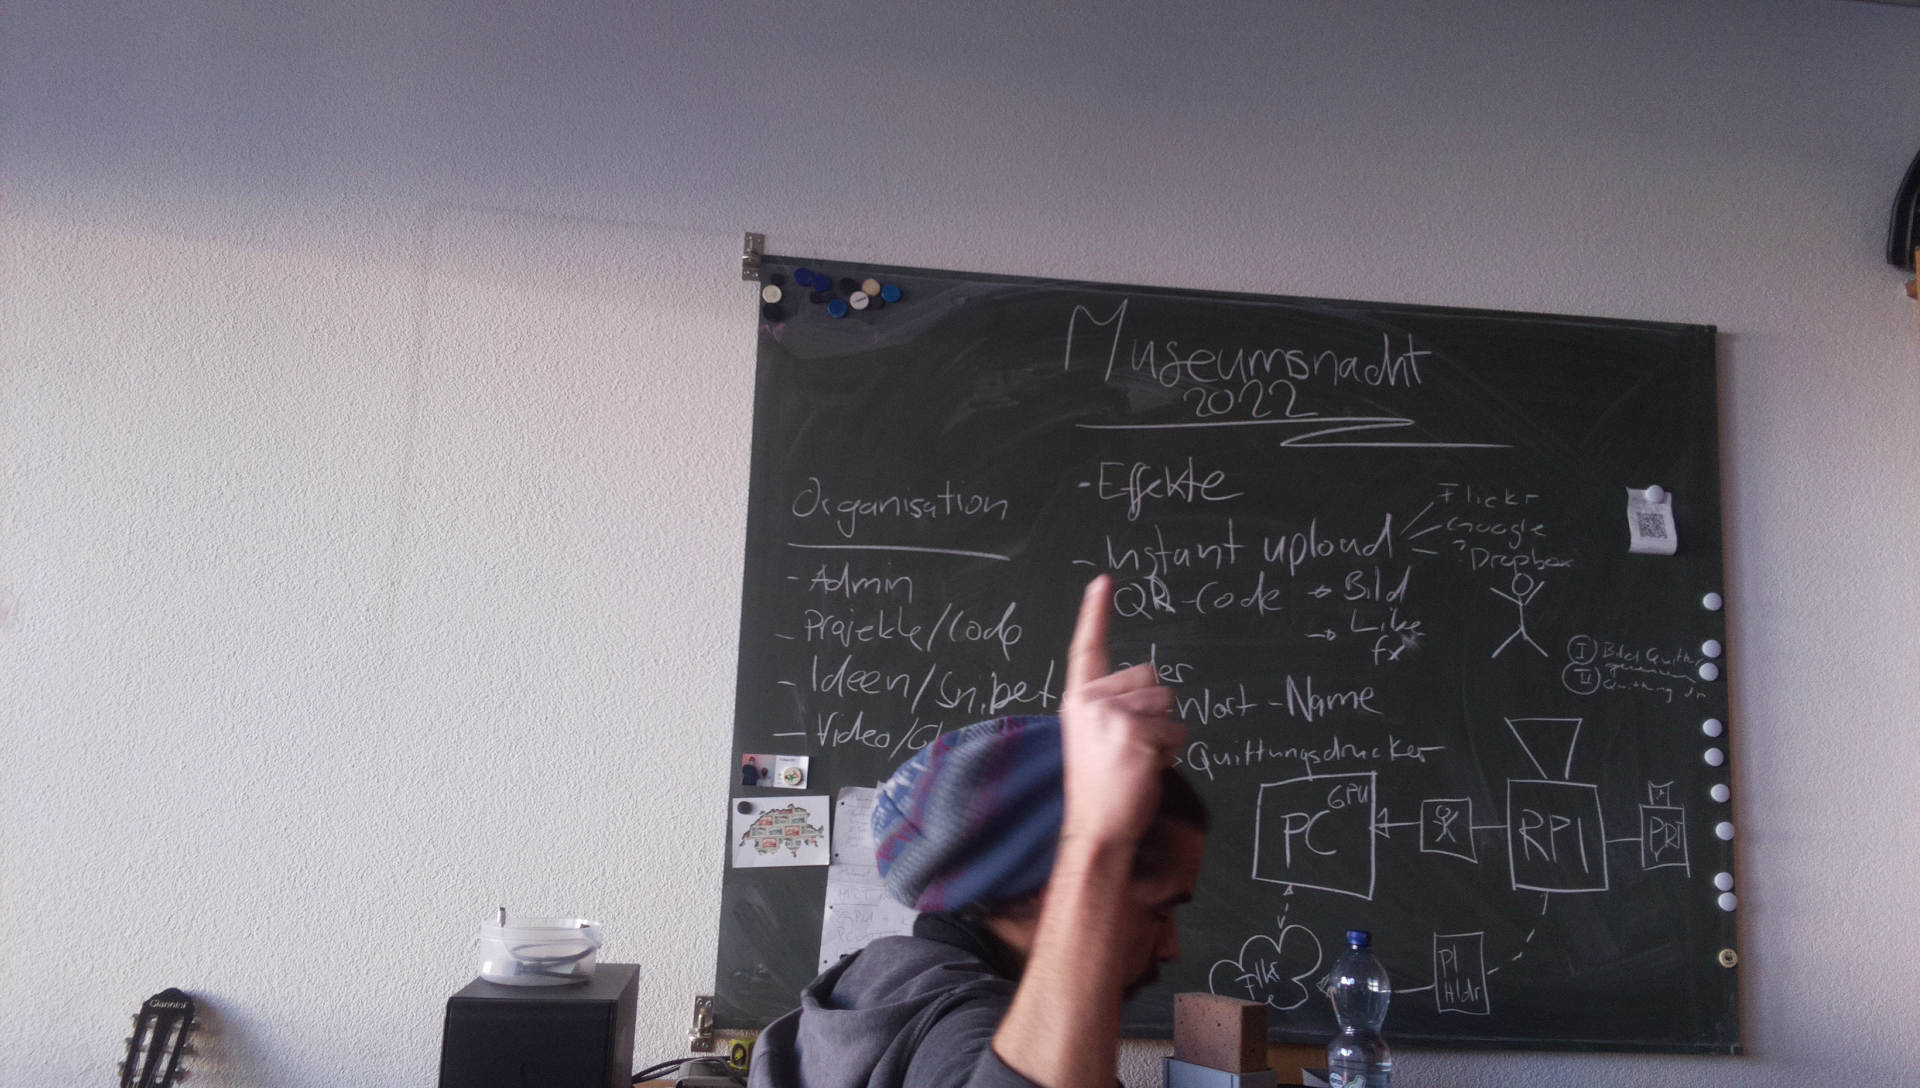 Museumsnacht
2022
Organisation
- Admin
- Projekte/Code
- Ideen/Snipets
- Video/
- Effekte
- Instant upload
Flickr
Google
? Dropbox
QR-Code → Bild
→ Like
fx
oder
-Wort-Name
Quittungsdrucker
I Bild
II Quittung
PC
GPU
RPI
PRI
Flkr
PI
Hldr
Giannini